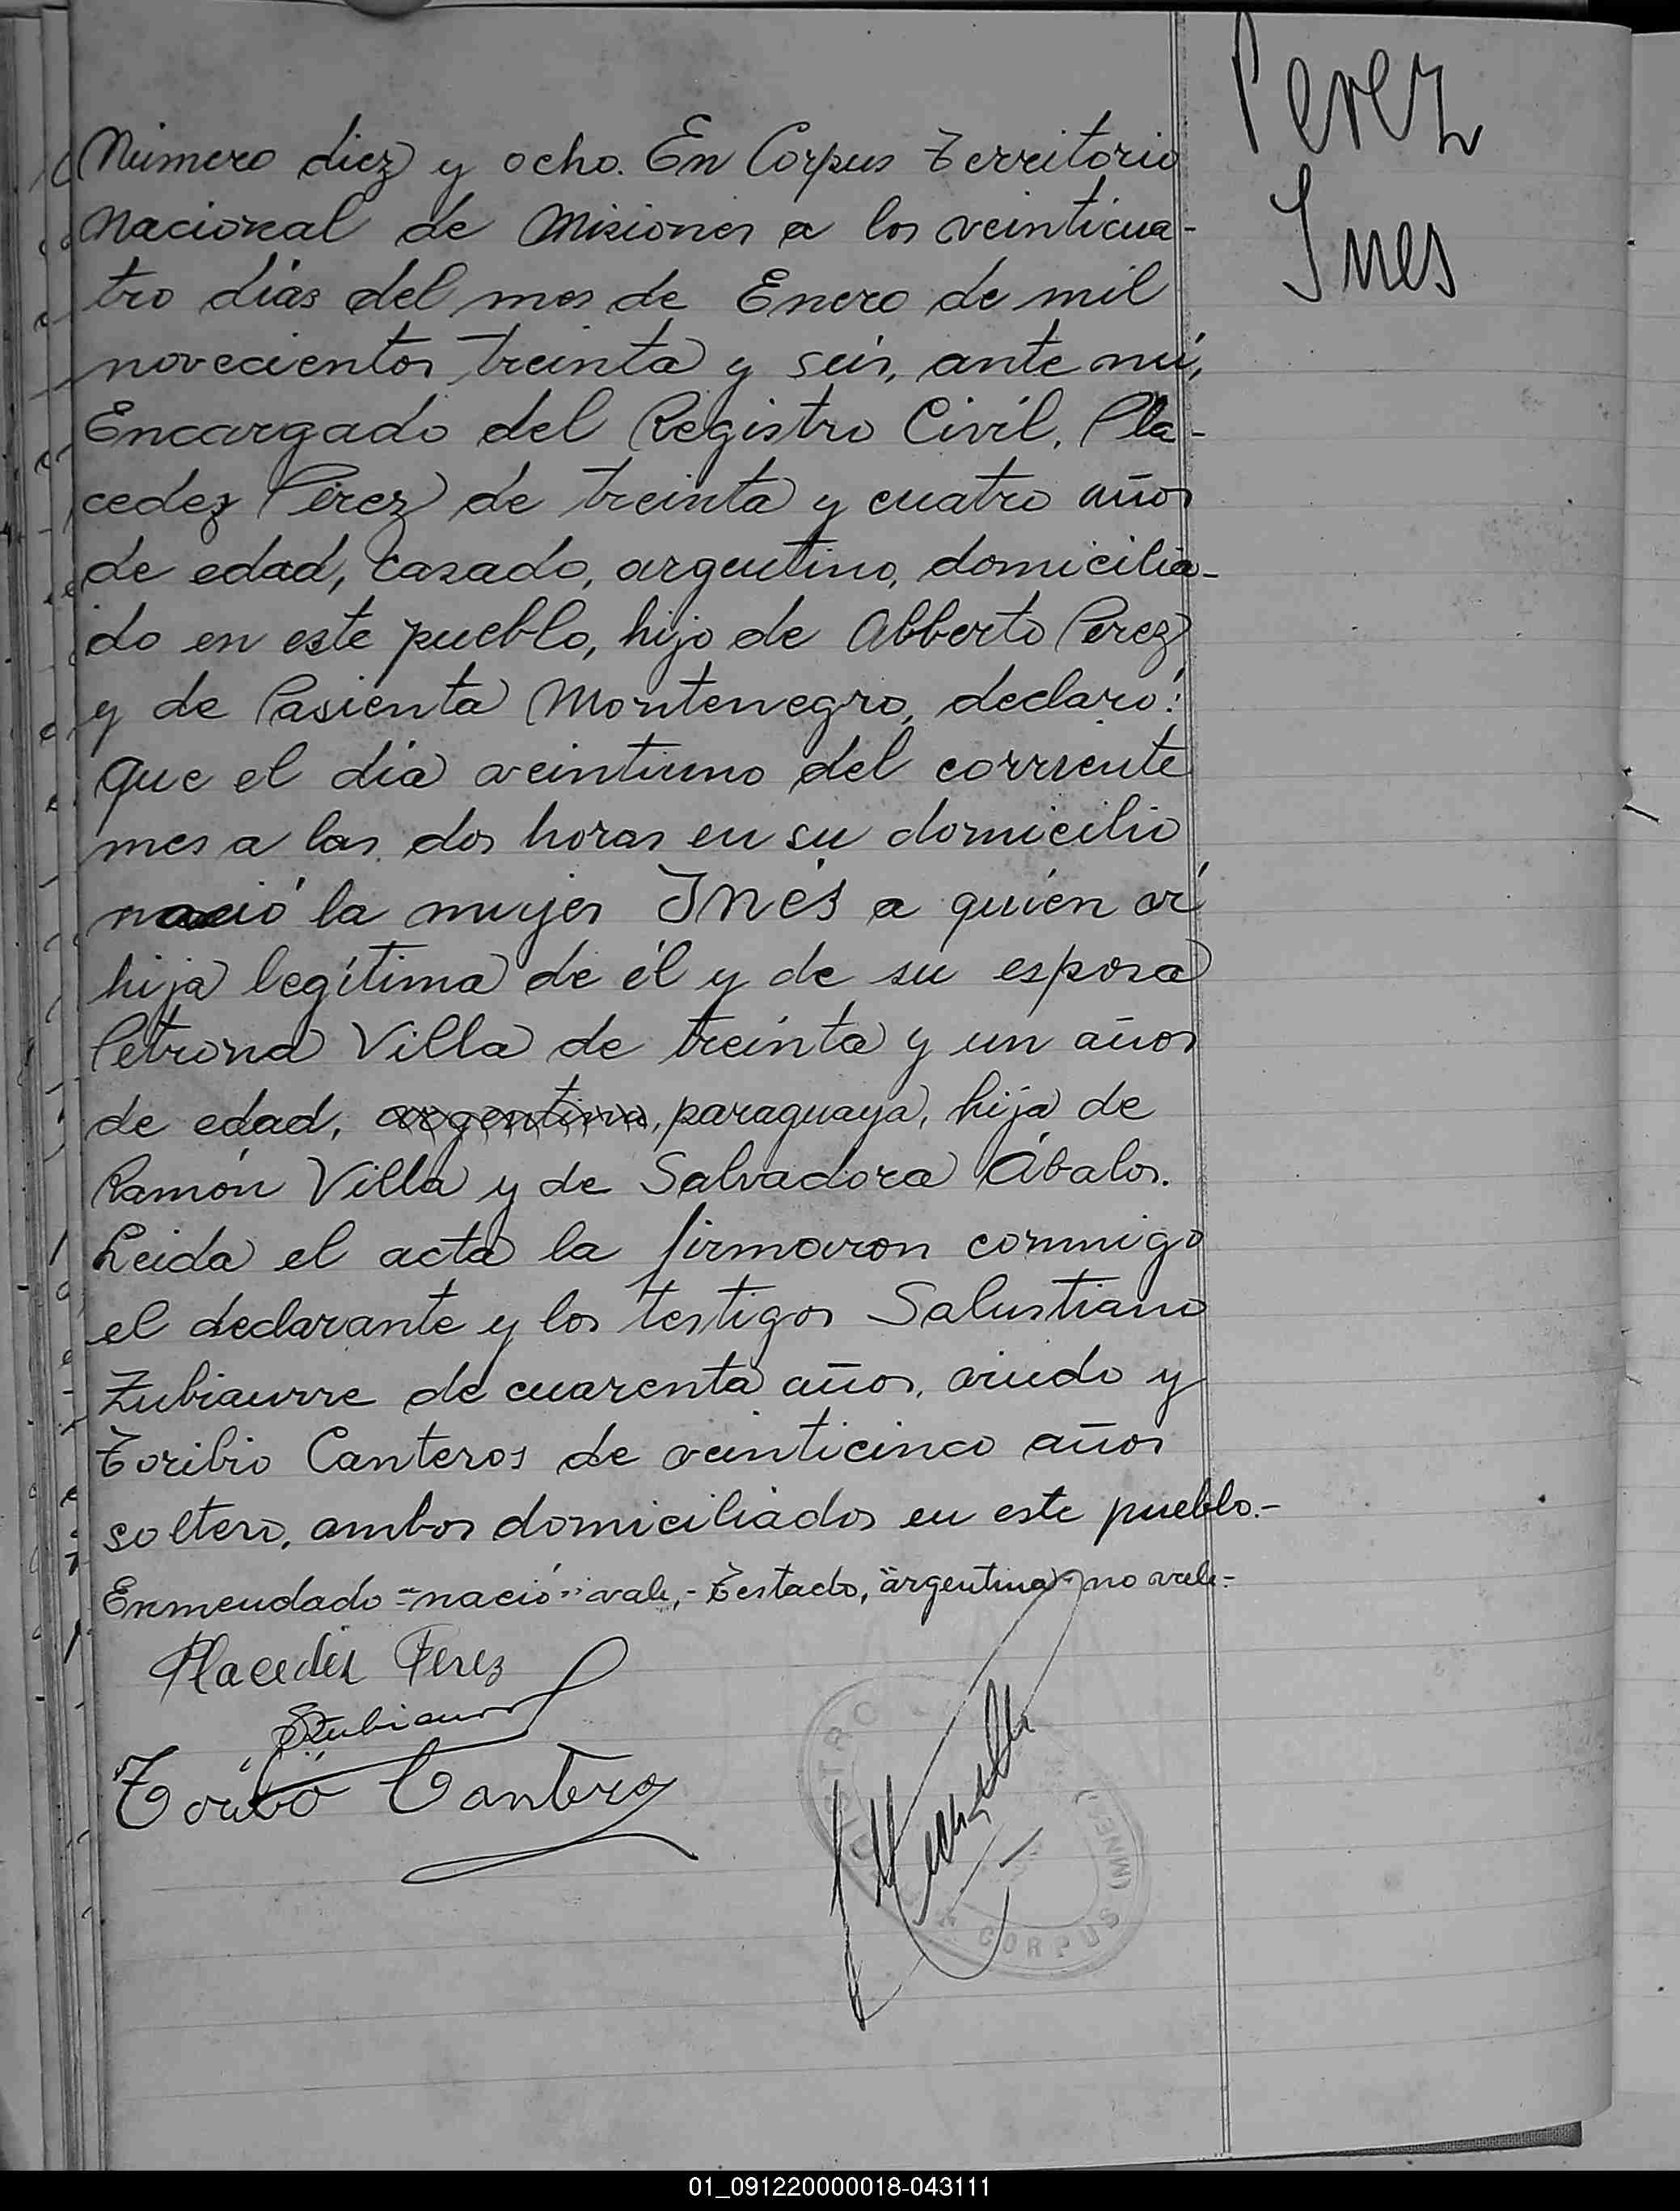 Perez
Ines
Número diez y ocho. En Corpus Territorio
Nacional de Misiones a los veinticua-
tro días del mes de Enero de mil
novecientos treinta y seis, ante mí,
Encargado del Registro Civil, Pla-
cedez Pérez de treinta y cuatro años
de edad, casado, argentino, domicilia-
do en este pueblo, hijo de Alberto Perez
y de Pasienta Montenegro, declaró:
Que el día veintiuno del corriente
mes a las dos horas en su domicilio
nació la mujer Inés a quién ví
hija legítima de él y de su esposa
Petrona Villa de treinta y un años
de edad, argentina, paraguaya, hija de
Ramón Villa y de Salvadora Ábalos.
Leida el acta la firmaron conmigo
el declarante y los testigos Salustiano
Zubiaurre de cuarenta años, viudo y
Toribio Canteros de veinticinco años
soltero, ambos domiciliados en este pueblo.-
Enmendado "nació" vale,- Testado, "argentina" no vale-
Placedez Perez
SZubiaurre
Toribio Canteros
CORPUS
(MNES.)
01_091220000018-043111